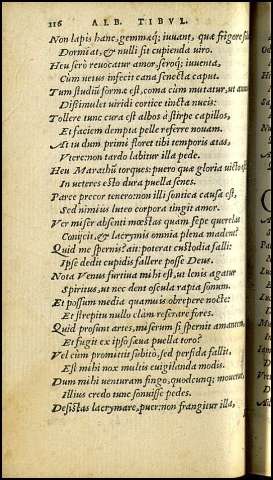 116 ALB. TIBVL.
Non lapis hanc, gemmaq; iuuant, quæ frigore sola
Dormiat, & nulli sit cupienda uiro.
Heu serò reuocatur amor, seroq; iuuenta,
Cum uetus infecit cana senecta caput.
Tum studiũ formæ est, coma cùm mutatur, ut annos
Dissimulet uiridi cortice tincta nucis:
Tollere tunc cura est albos à stirpe capillos,
Et faciem dempta pelle referre nouam.
At tu dum primi floret tibi temporis ætas,
Vtere: non tardo labitur illa pede.
Heu Marathũ torques: puero quæ gloria uicto est?
In ueteres esto dura puella senes.
Parce precor tenero: non illi sontica causa est,
Sed nimius luteo corpora tingit amor.
Ver miser absenti mœstas quam sæpe querelas
Conijcit, & lacrymis omnia plena madent?
Quid me spernis? ait: poterat custodia falli:
Ipse dedit cupidis fallere posse Deus.
Nota Venus furtiua mihi est, ut lenis agatur
Spiritus, ut nec dent oscula rapta sonum.
Et possum media quamuis obrepere nocte:
Et strepitu nullo clàm reserare fores.
Quid prosunt artes, miserum si spernit amantem,
Et fugit ex ipso sæua puella toro?
Vel cùm promittit subitò, sed perfida fallit,
Est mihi nox multis euigilanda modis.
Dum mihi uenturam fingo, quodcunq; mouetur,
Illius credo tunc sonuisse pedes.
Desistas lacrymare, puer: non frangitur illa,